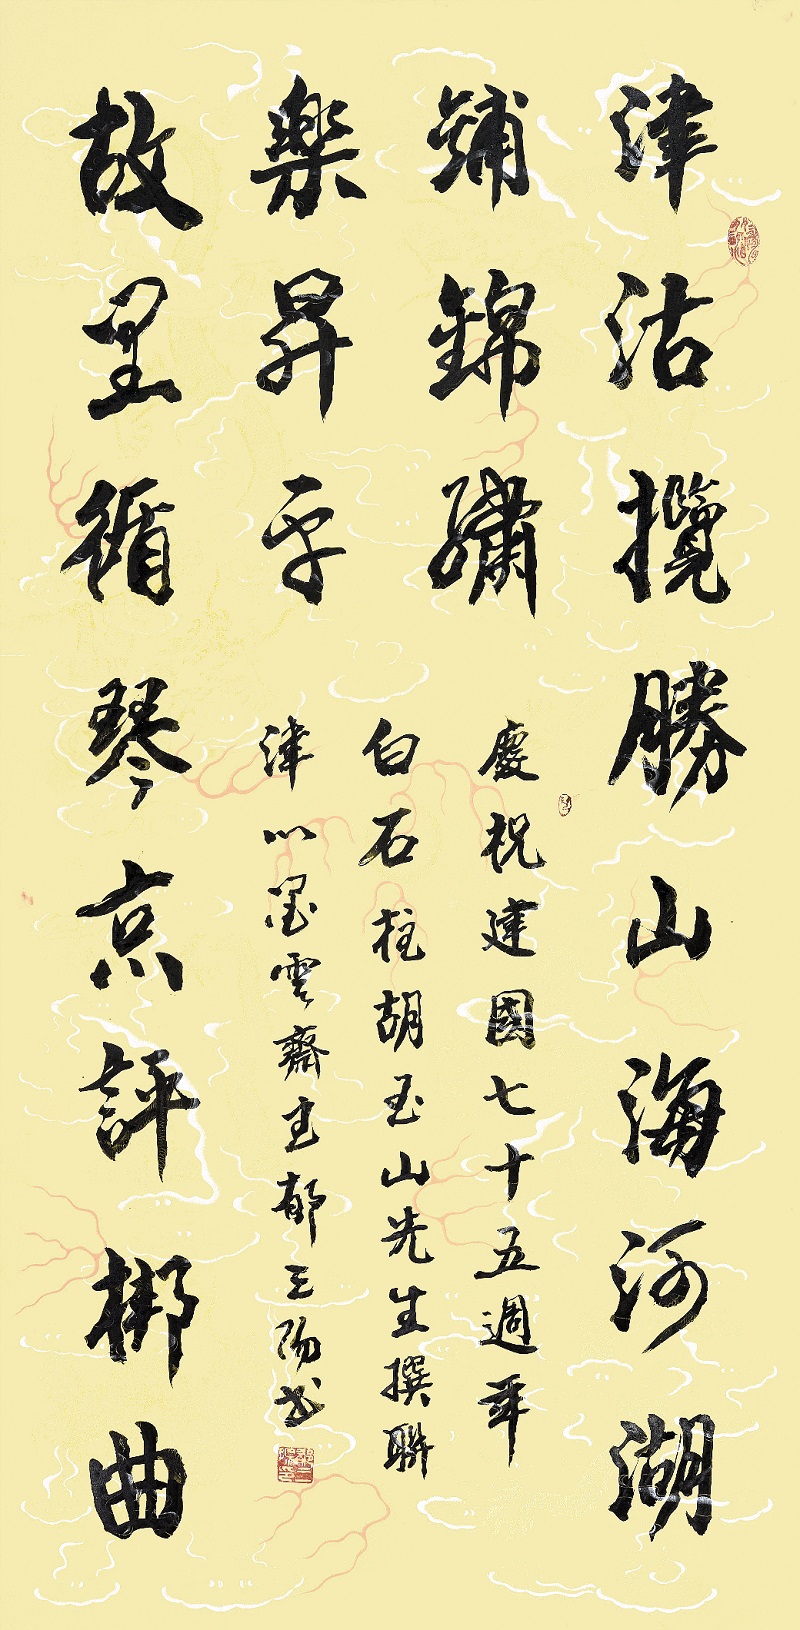 津沽攬勝山海河湖
鋪錦繡
故里循琴京評梆曲
樂昇平
慶祝建國七十五週年
白石柱胡玉山先生撰聯
津墨雲齋主郁三陽书